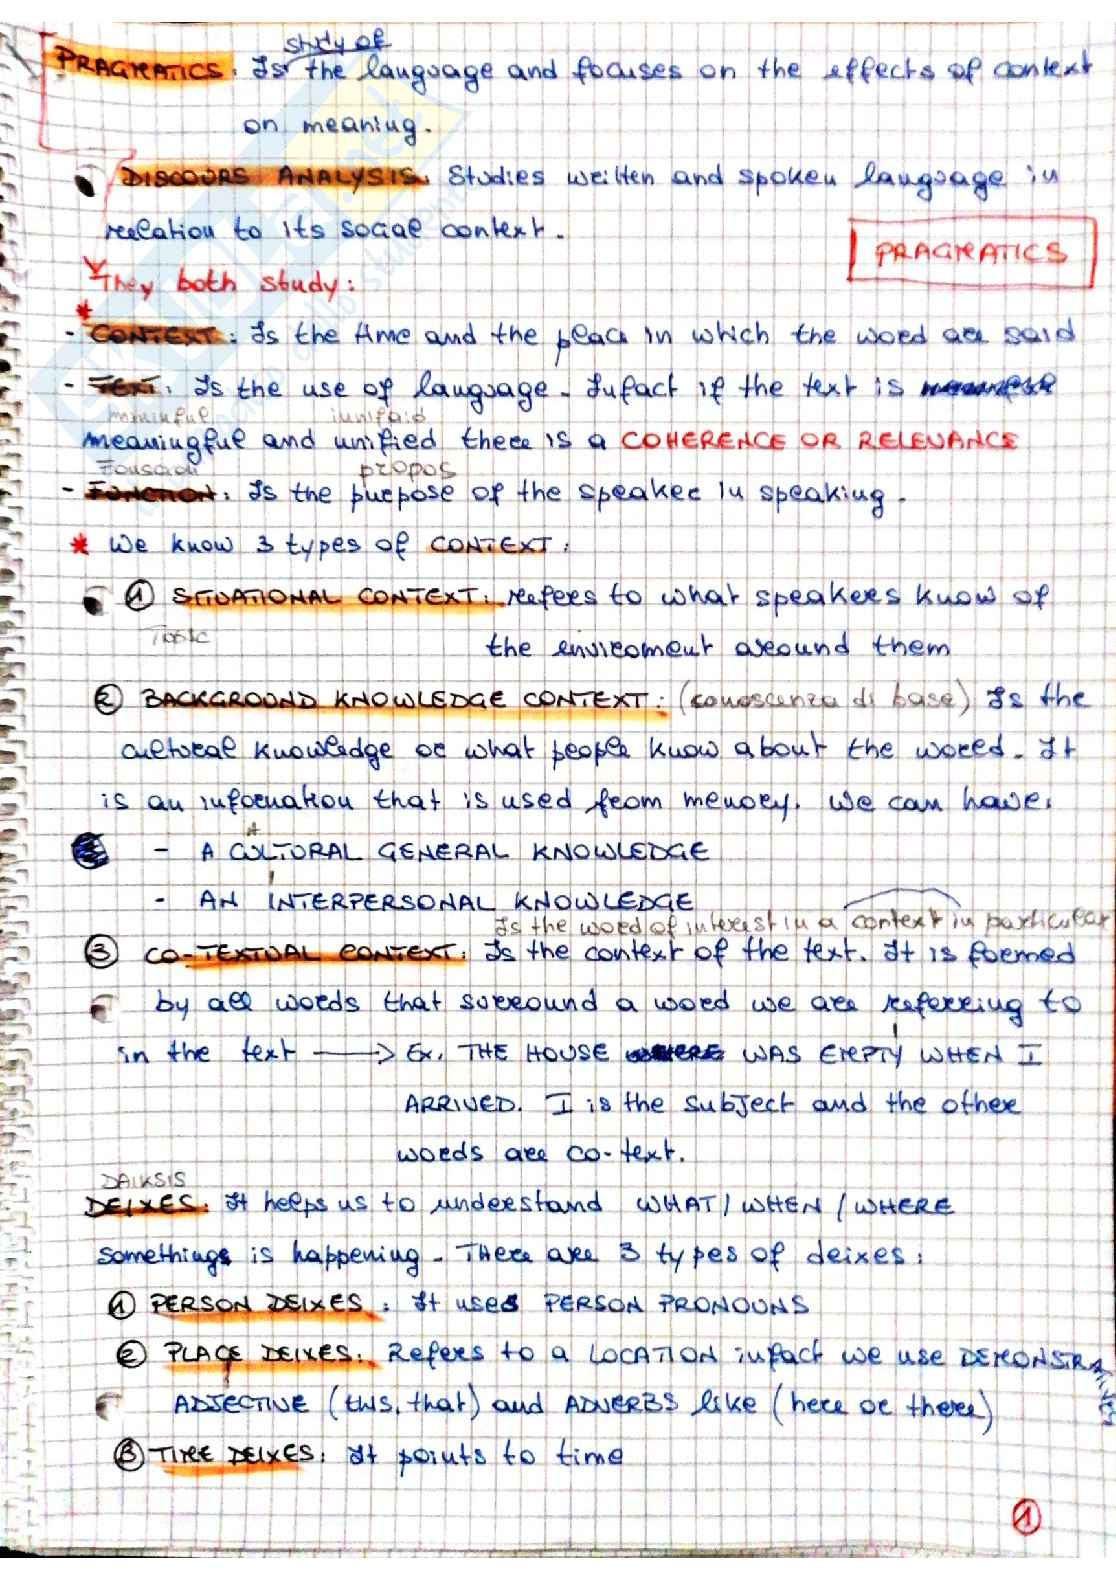 study of
PRAGMATICS: Is the language and focuses on the effects of context
on meaning.
DISCOURS ANALYSIS: Studies written and spoken language in
relation to its social context.
PRAGMATICS
They both study:
- CONTEXT: Is the time and the place in which the word are said
- TEXT: Is the use of language. Infact if the text is
mininful iunifaid
meaningful and unified there is a COHERENCE OR RELEVANCE
propos
- FUNCTION: Is the purpose of the speaker in speaking.
* We know 3 types of CONTEXT:
① SITUATIONAL CONTEXT: refers to what speakers know of
Topic
the enviroment around them
② BACKGROUND KNOWLEDGE CONTEXT: (conoscenza di base) Is the
cultural knowledge or what people know about the world. It
is an information that is used from memory. We can have:
- A CULTURAL GENERAL KNOWLEDGE
- AN INTERPERSONAL KNOWLEDGE
Is the word of interest in a context in particular
③ CO-TEXTUAL CONTEXT: Is the context of the text. It is formed
by all words that surround a word we are referring to
in the text → Ex. THE HOUSE WAS EMPTY WHEN I
ARRIVED. I is the subject and the other
words are co-text.
DAIKSIS
DEIXES: It helps us to understand WHAT/WHEN/WHERE
somethings is happening. There are 3 types of deixes:
① PERSON DEIXES: It uses PERSON PRONOUNS
② PLACE DEIXES: Refers to a LOCATION infact we use DEMONSTRATIVES
ADJECTIVE (this, that) and ADVERBS like (here or there)
③ TIME DEIXES: It points to time
①